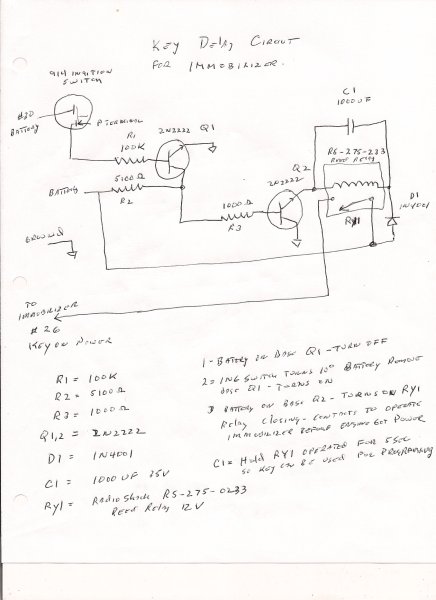 KEY DELAY CIRCUIT
FOR IMMOBILIZER.
914 IGNITION
SWITCH
#30
BATTERY
P TERMINAL
R1
100K
2N2222 Q1
BATTERY
5100Ω
R2
1000Ω
R3
Q2
2N2222
C1
1000UF
RS-275-233
REED RELAY
RY1
D1
1N4001
GROUND
TO
IMMOBILIZER
# 26
KEY ON POWER
R1 = 100K
R2 = 5100Ω
R3 = 1000Ω
Q1,2 = 2N2222
D1 = 1N4001
C1 = 1000UF 35V
RY1 = RADIO SHACK RS-275-0233
REED RELAY 12V
1 - BATTERY ON BASE Q1 - TURN OFF
2 = ING SWITCH TURNS BATTERY REMOVE
BASE Q1 - TURNS ON
3 BATTERY ON BASE Q2 - TURNS ON RY1
RELAY CLOSING - CONTACTS TO OPERATE
IMMOBILIZER BEFORE ENGINE GET POWER
C1 = HOLD RY1 OPERATED FOR 5 SEC
SO KEY CAN BE USED FOR PROGRAMMING